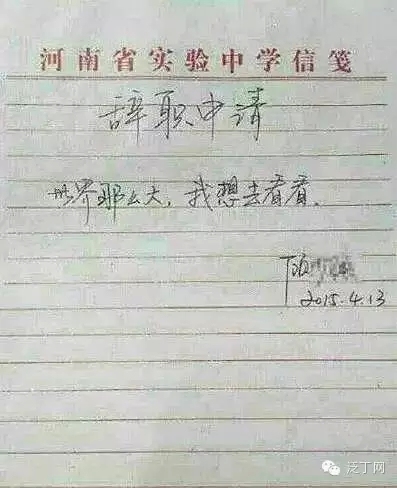 河南省实验中学信笺
辞职申请
世界那么大，我想去看看。
顾
2015.4.13
泛丁网